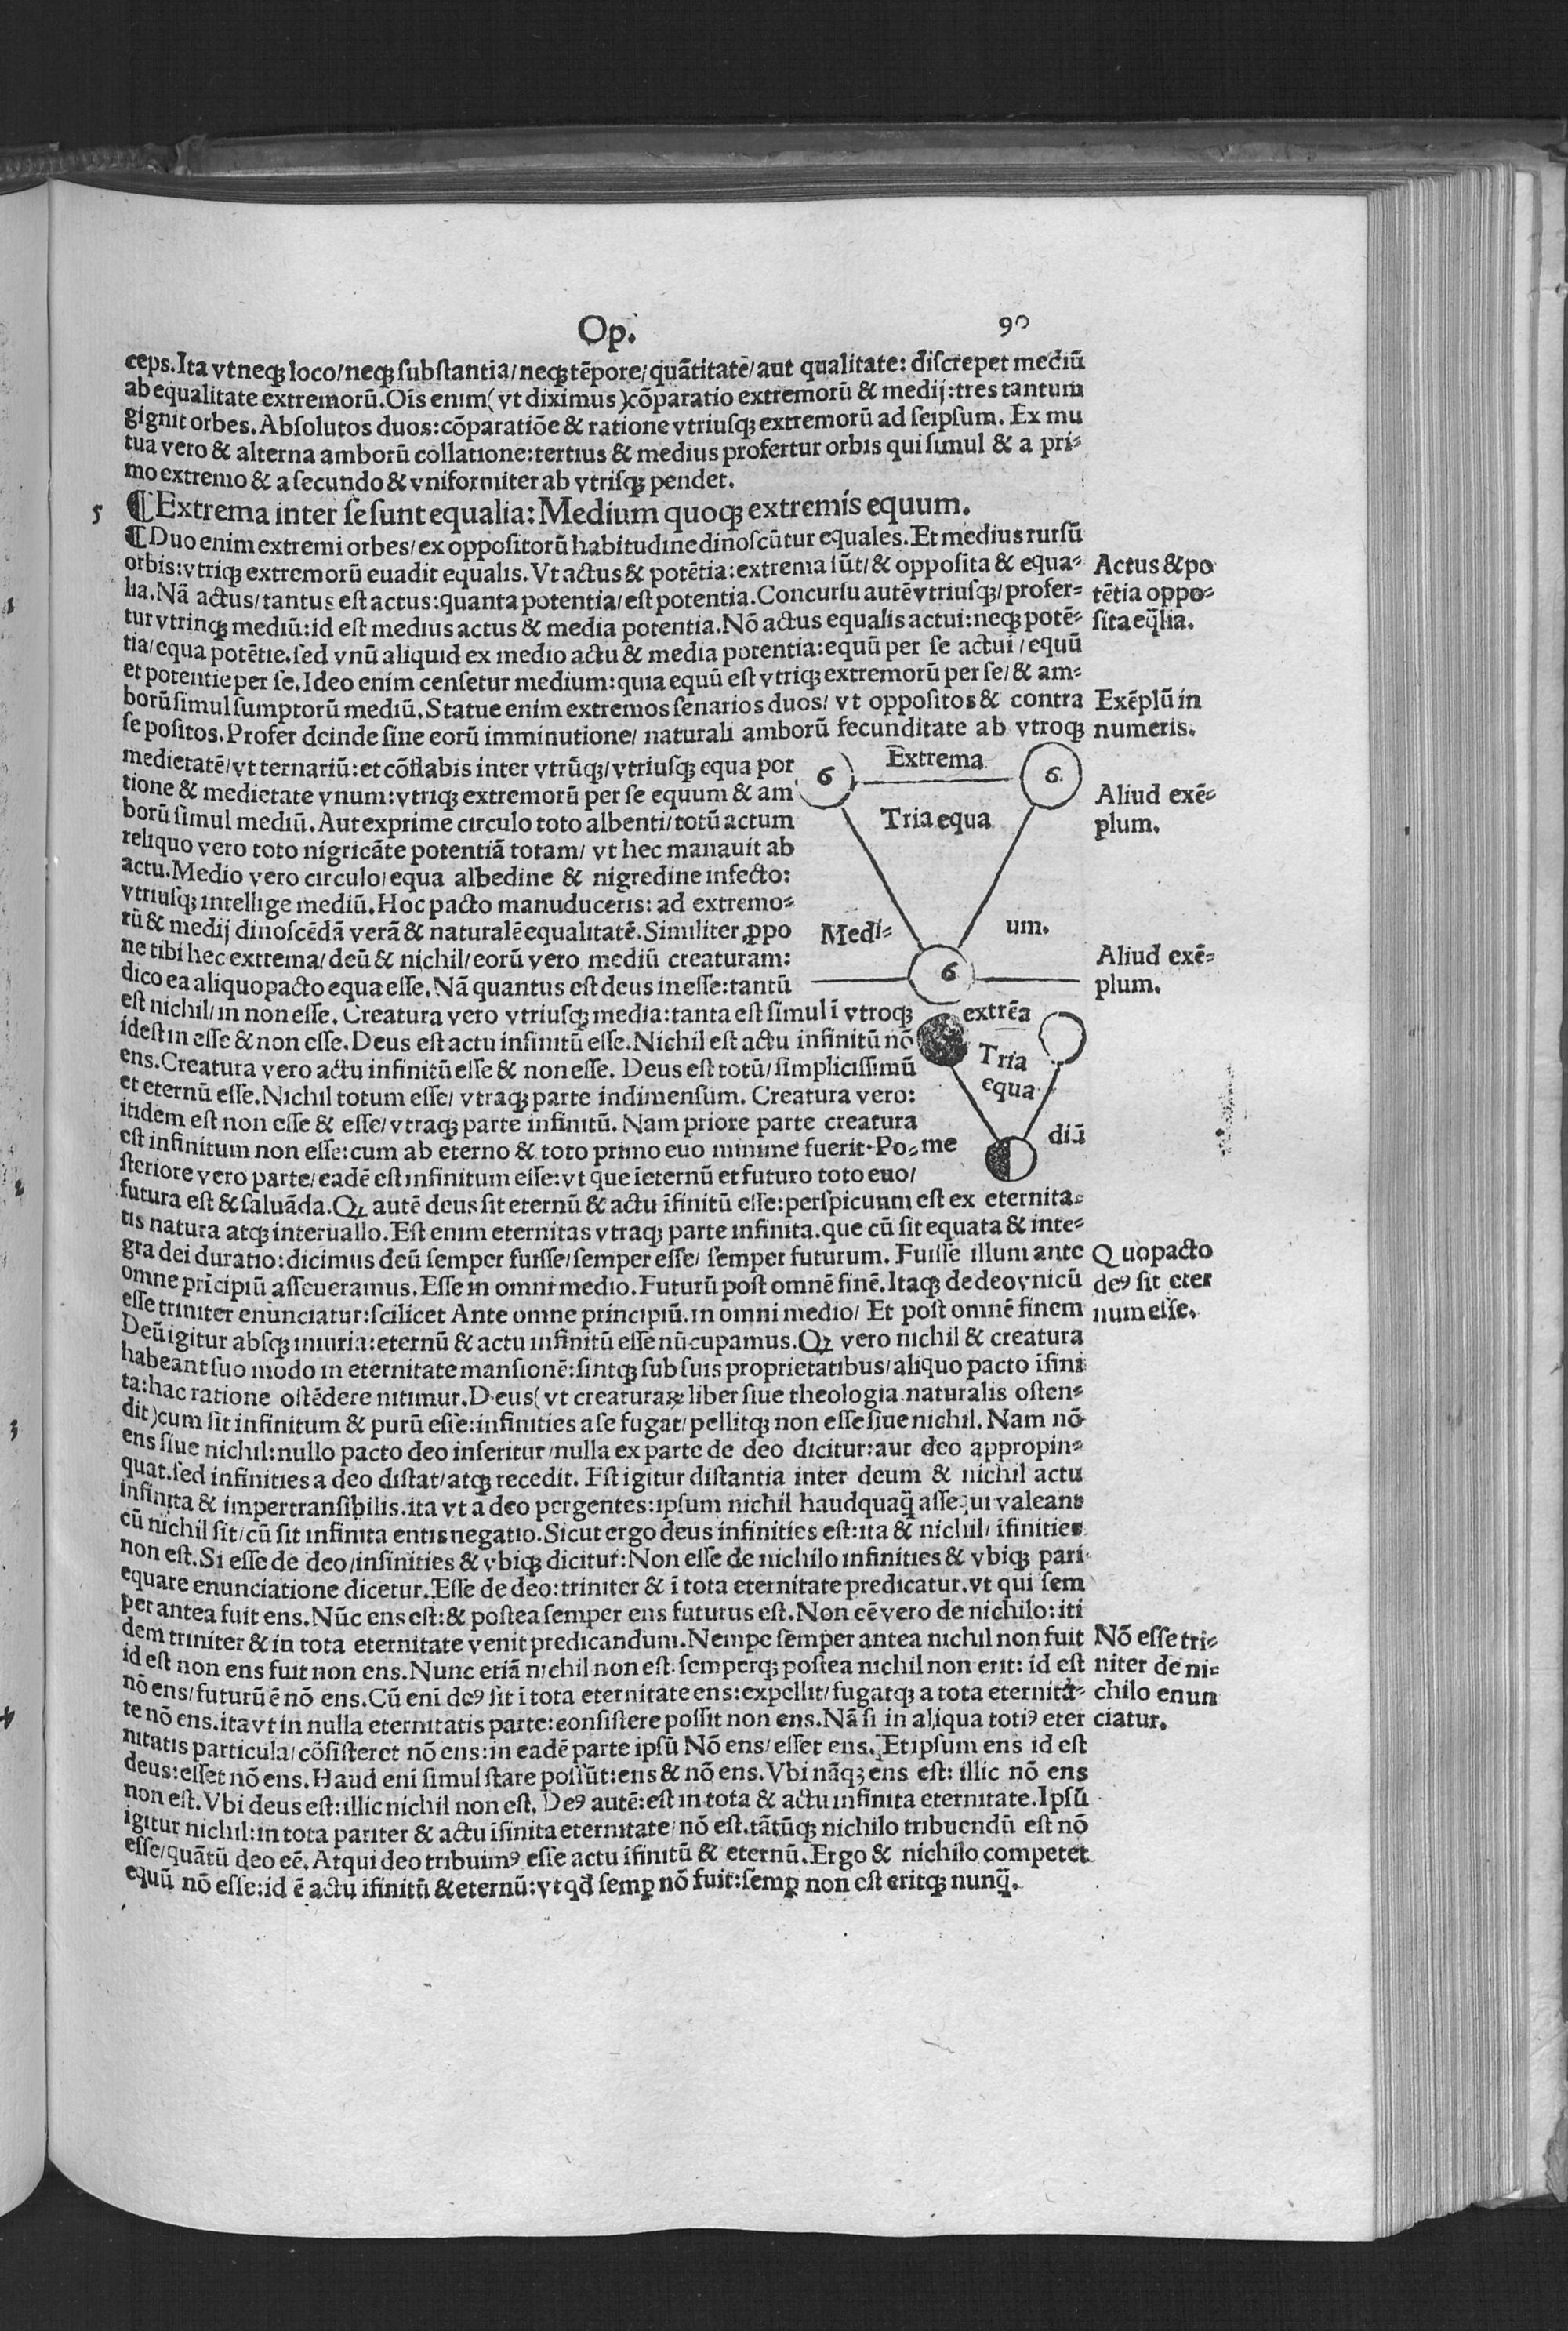 Op. 90
ceps. Ita vt neqꝫ loco/ neqꝫ substantia/ neqꝫ tēpore/ quātitate/ aut qualitate: discrepet mediū
ab equalitate extremorū. Oīs enim (vt diximus) cōparatio extremorū & medij: tres tantum
gignit orbes. Absolutos duos: cōparatiōe & ratione vtriusqꝫ extremorū ad seipsum. Ex mu
tua vero & alterna amborū collatione: tertius & medius profertur orbis qui simul & a pri⸗
mo extremo & a secundo & vniformiter ab vtrisqꝫ pendet.
5 ¶ Extrema inter se sunt equalia: Medium quoqꝫ extremis equum.
¶ Duo enim extremi orbes/ ex oppositorū habitudine dinoscūtur equales. Et medius rursū
orbis: vtriqꝫ extremorū euadit equalis. Vt actus & potētia: extrema sūt/ & opposita & equa⸗
lia. Nā actus/ tantus est actus: quanta potentia/ est potentia. Concursu autē vtriusqꝫ/ profer⸗
tur vtrinqꝫ mediū: id est medius actus & media potentia. Nō actus equalis actui: neqꝫ potē⸗
tia/ equa potētie. sed vnū aliquid ex medio actu & media potentia: equū per se actui/ equū
et potentie per se. Ideo enim censetur medium: quia equū est vtriqꝫ extremorū per se/ & am⸗
borū simul sumptorū mediū. Statue enim extremos senarios duos/ vt oppositos & contra
se positos. Profer deinde sine eorū imminutione/ naturali amborū fecunditate ab vtroqꝫ
Actus & po
tētia oppo⸗
sita eq̄lia.
Exēplū in
numeris.
medietatē/ vt ternariū: et cōflabis inter vtrūqꝫ/ vtriusqꝫ equa por
tione & medietate vnum: vtriqꝫ extremorū per se equum & am
borū simul mediū. Aut exprime circulo toto albenti/ totū actum
reliquo vero toto nigricāte potentiā totam/ vt hec manauit ab
actu. Medio vero circulo/ equa albedine & nigredine infecto:
vtriusqꝫ intellige mediū. Hoc pacto manuduceris: ad extremo⸗
rū & medij dinoscēdā verā & naturalē equalitatē. Similiter ꝓpo
ne tibi hec extrema/ deū & nichil/ eorū vero mediū creaturam:
dico ea aliquo pacto equa esse. Nā quantus est deus in esse: tantū
est nichil/ in non esse. Creatura vero vtriusqꝫ media: tanta est simul ī vtroqꝫ
idest in esse & non esse. Deus est actu infinitū esse. Nichil est actu infinitū nō
ens. Creatura vero actu infinitū esse & non esse. Deus est totū/ simplicissimū
et eternū esse. Nichil totum esse/ vtraqꝫ parte indimensum. Creatura vero:
itidem est non esse & esse/ vtraqꝫ parte infinitū. Nam priore parte creatura
est infinitum non esse: cum ab eterno & toto primo euo minime fuerit. Po⸗
steriore vero parte/ eadē est infinitum esse: vt que īeternū et futuro toto euo/
6 Extrema 6.
Tria equa
Medi⸗ um.
6
Aliud exē⸗
plum.
Aliud exē⸗
plum.
extrēa
Tria
equa
me diū
futura est & saluāda. Qꝫ autē deus sit eternū & actu īfinitū esse: perspicuum est ex eternita⸗
tis natura atqꝫ interuallo. Est enim eternitas vtraqꝫ parte infinita. que cū sit equata & inte⸗
gra dei duratio: dicimus deū semper fuisse/ semper esse/ semper futurum. Fuisse illum ante
omne pricipiū asseueramus. Esse in omni medio. Futurū post omnē finē. Itaqꝫ de deo vnicū
esse triniter enunciatur: scilicet Ante omne principiū. in omni medio/ Et post omnē finem
Deū igitur absqꝫ iniuria: eternū & actu infinitū esse nūcupamus. Qꝫ vero nichil & creatura
habeant suo modo in eternitate mansionē: sintqꝫ sub suis proprietatibus/ aliquo pacto īfini
ta: hac ratione ostēdere nitimur. Deus (vt creaturaꝝ liber siue theologia naturalis osten⸗
dit) cum sit infinitum & purū esse: infinities a se fugat/ pellitqꝫ non esse siue nichil. Nam nō
ens siue nichil: nullo pacto deo inseritur/ nulla ex parte de deo dicitur: aut deo appropin⸗
quat. sed infinities a deo distat/ atqꝫ recedit. Est igitur distantia inter deum & nichil actu
infinita & impertransibilis. ita vt a deo pergentes: ipsum nichil haudquaq̄ assequi valeant
cū nichil sit/ cū sit infinita entis negatio. Sicut ergo deus infinities est: ita & nichil/ īfinities
non est. Si esse de deo/ infinities & vbiqꝫ dicitur: Non esse de nichilo infinities & vbiqꝫ pari
equare enunciatione dicetur. Esse de deo: triniter & ī tota eternitate predicatur. vt qui sem
per antea fuit ens. Nūc ens est: & postea semper ens futurus est. Non eē vero de nichilo: iti
dem triniter & in tota eternitate venit predicandum. Nempe semper antea nichil non fuit
id est non ens fuit non ens. Nunc etiā nichil non est. semperqꝫ postea nichil non erit: id est
nō ens/ futurū ē nō ens. Cū eni deꝰ sit ī tota eternitate ens: expellit/ fugatqꝫ a tota eternita⸗
te nō ens. ita vt in nulla eternitatis parte: consistere possit non ens. Nā si in aliqua totiꝰ eter
nitatis particula/ cōsisteret nō ens: in eadē parte ipsū Nō ens/ esset ens. Et ipsum ens id est
deus: esset nō ens. Haud eni simul stare possūt: ens & nō ens. Vbi nāqꝫ ens est: illic nō ens
non est. Vbi deus est: illic nichil non est. Deꝰ autē: est in tota & actu infinita eternitate. Ipsū
igitur nichil: in tota pariter & actu īfinita eternitate/ nō est. tātūqꝫ nichilo tribuendū est nō
esse/ quātū deo eē. Atqui deo tribuimꝰ esse actu īfinitū & eternū. Ergo & nichilo competet
equū nō esse: id ē actu īfinitū & eternū: vt qd̄ semꝑ nō fuit: semꝑ non est eritqꝫ nunq̄.
Quo pacto
deꝰ sit eter
num esse.
Nō esse tri⸗
niter de ni⸗
chilo enun
ciatur.